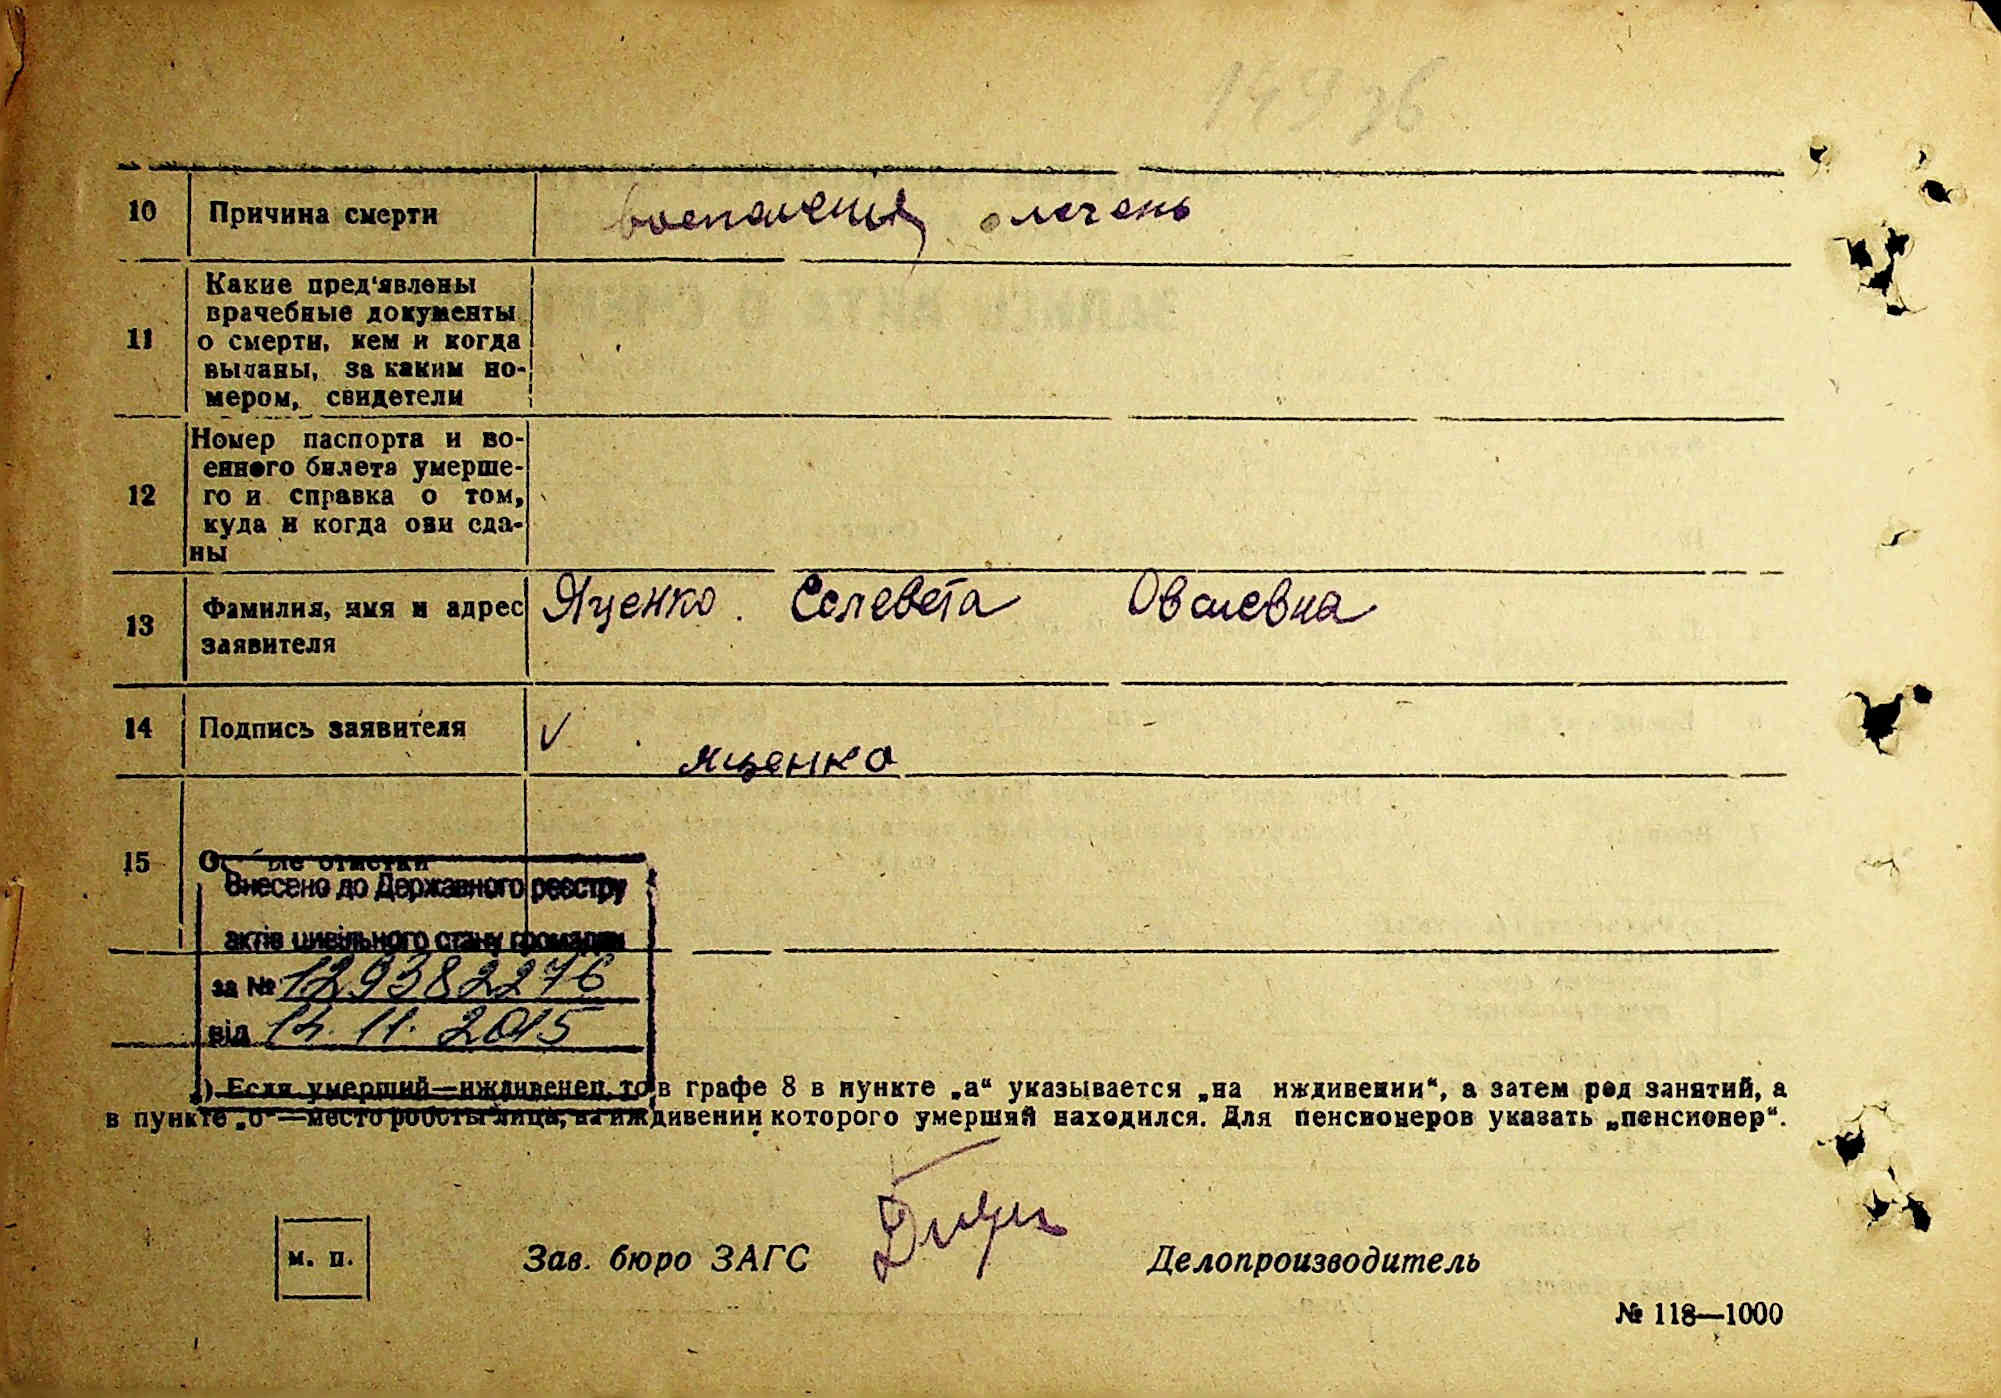 10 Причина смерти воспаления печень
11 Какие пред'явлены
врачебные документы
о смерти, кем и когда
выданы, за каким но-
мером, свидетели
12 Номер паспорта и во-
енного билета умерше-
го и справка о том,
куда и когда они сда-
ны
13 Фамилия, имя и адрес
заявителя
Яценко. Селевета
14 Подпись заявителя
√ яценко
15 отметки
Внесено до Державного реєстру
актів цивільного стану громадян
за № 129382276
від 14.11.2015
) Если умерший—иждивенец, то в графе 8 в пункте „а“ указывается „на иждивении“, а затем род занятий, а
в пункте „б“—место работы лица, на иждивении которого умерший находился. Для пенсионеров указать „пенсионер“.
м. п.
Зав. бюро ЗАГС
Делопроизводитель
№ 118—1000